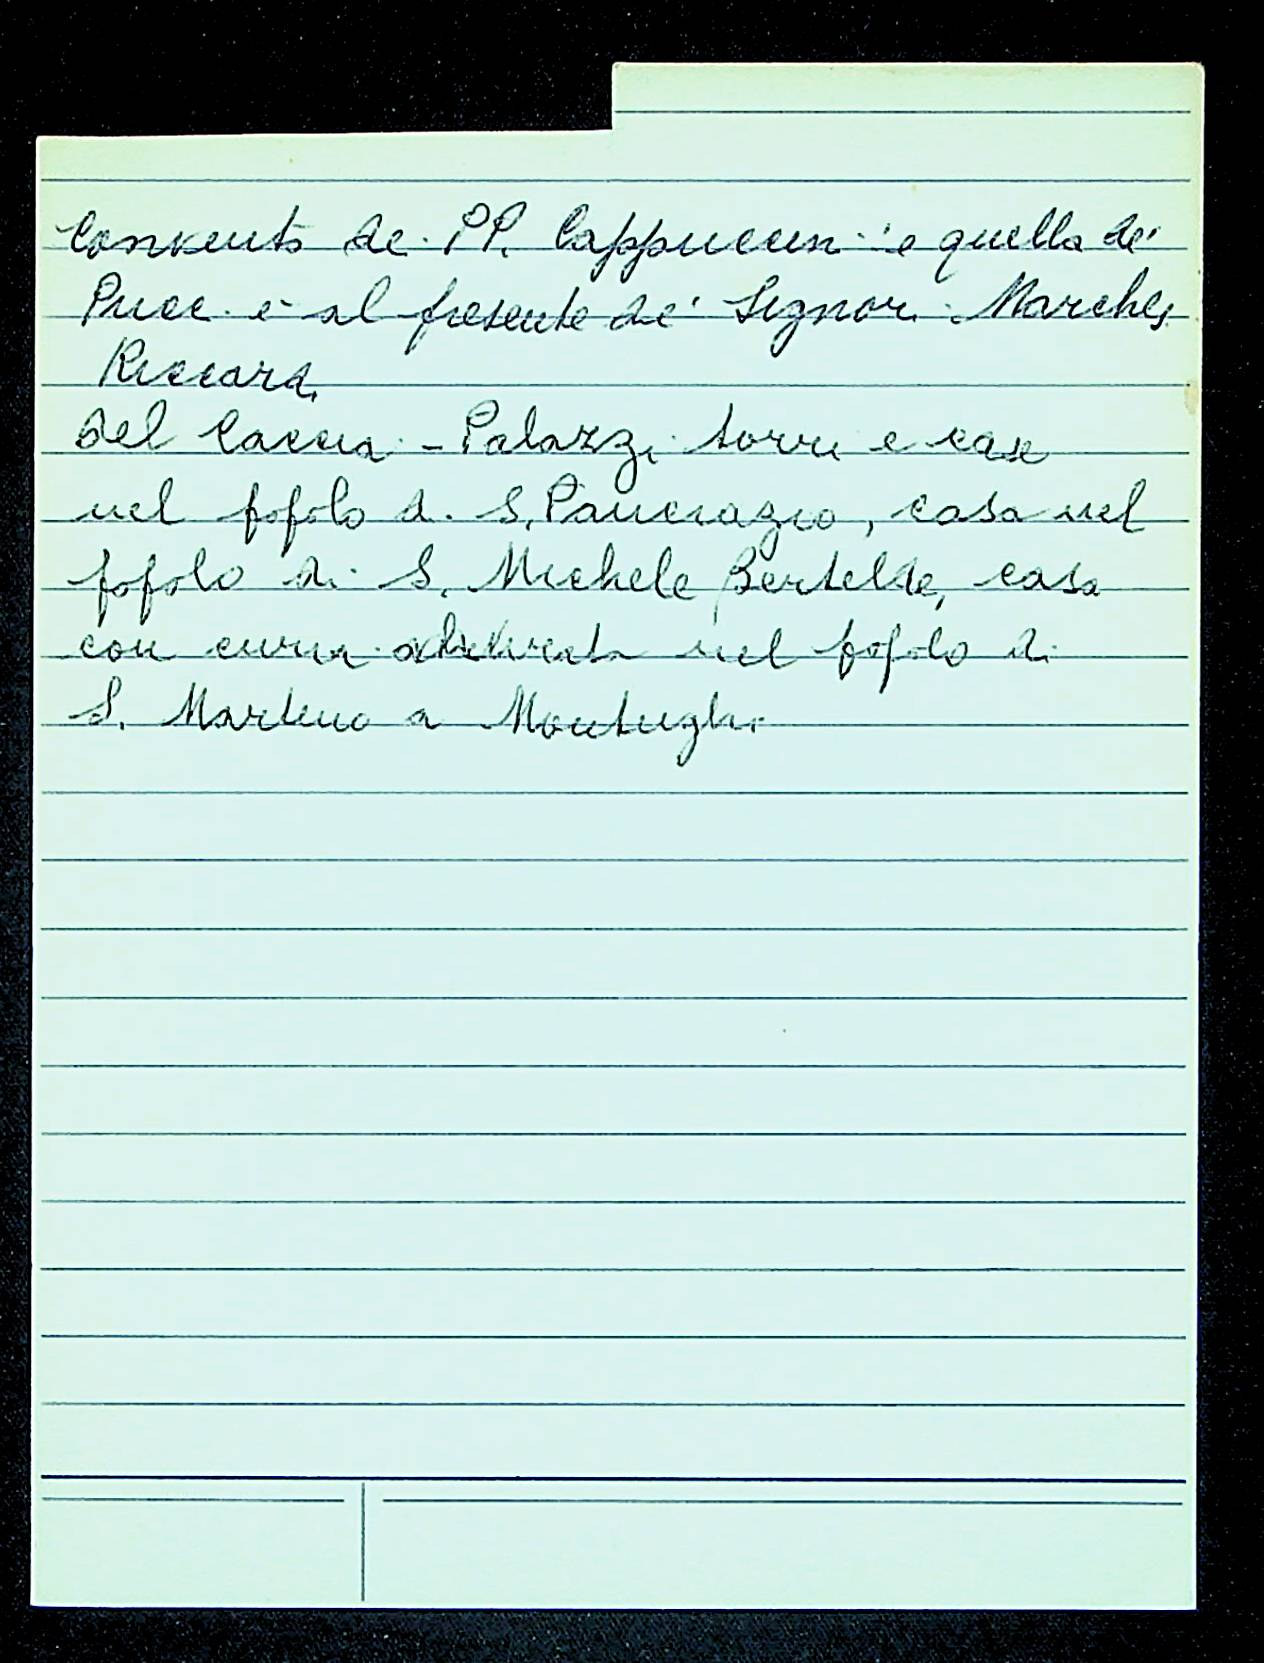 Convento de' PP. Cappuccini e quella de'
Pucci è al presente de' Signori Marchesi
Riccardi
Del Caccia - Palazzi torri e case
nel popolo di S. Pancrazio, casa nel
popolo di S. Michele Bertelde, casa
con curia nel popolo di
S. Martino a Montughi